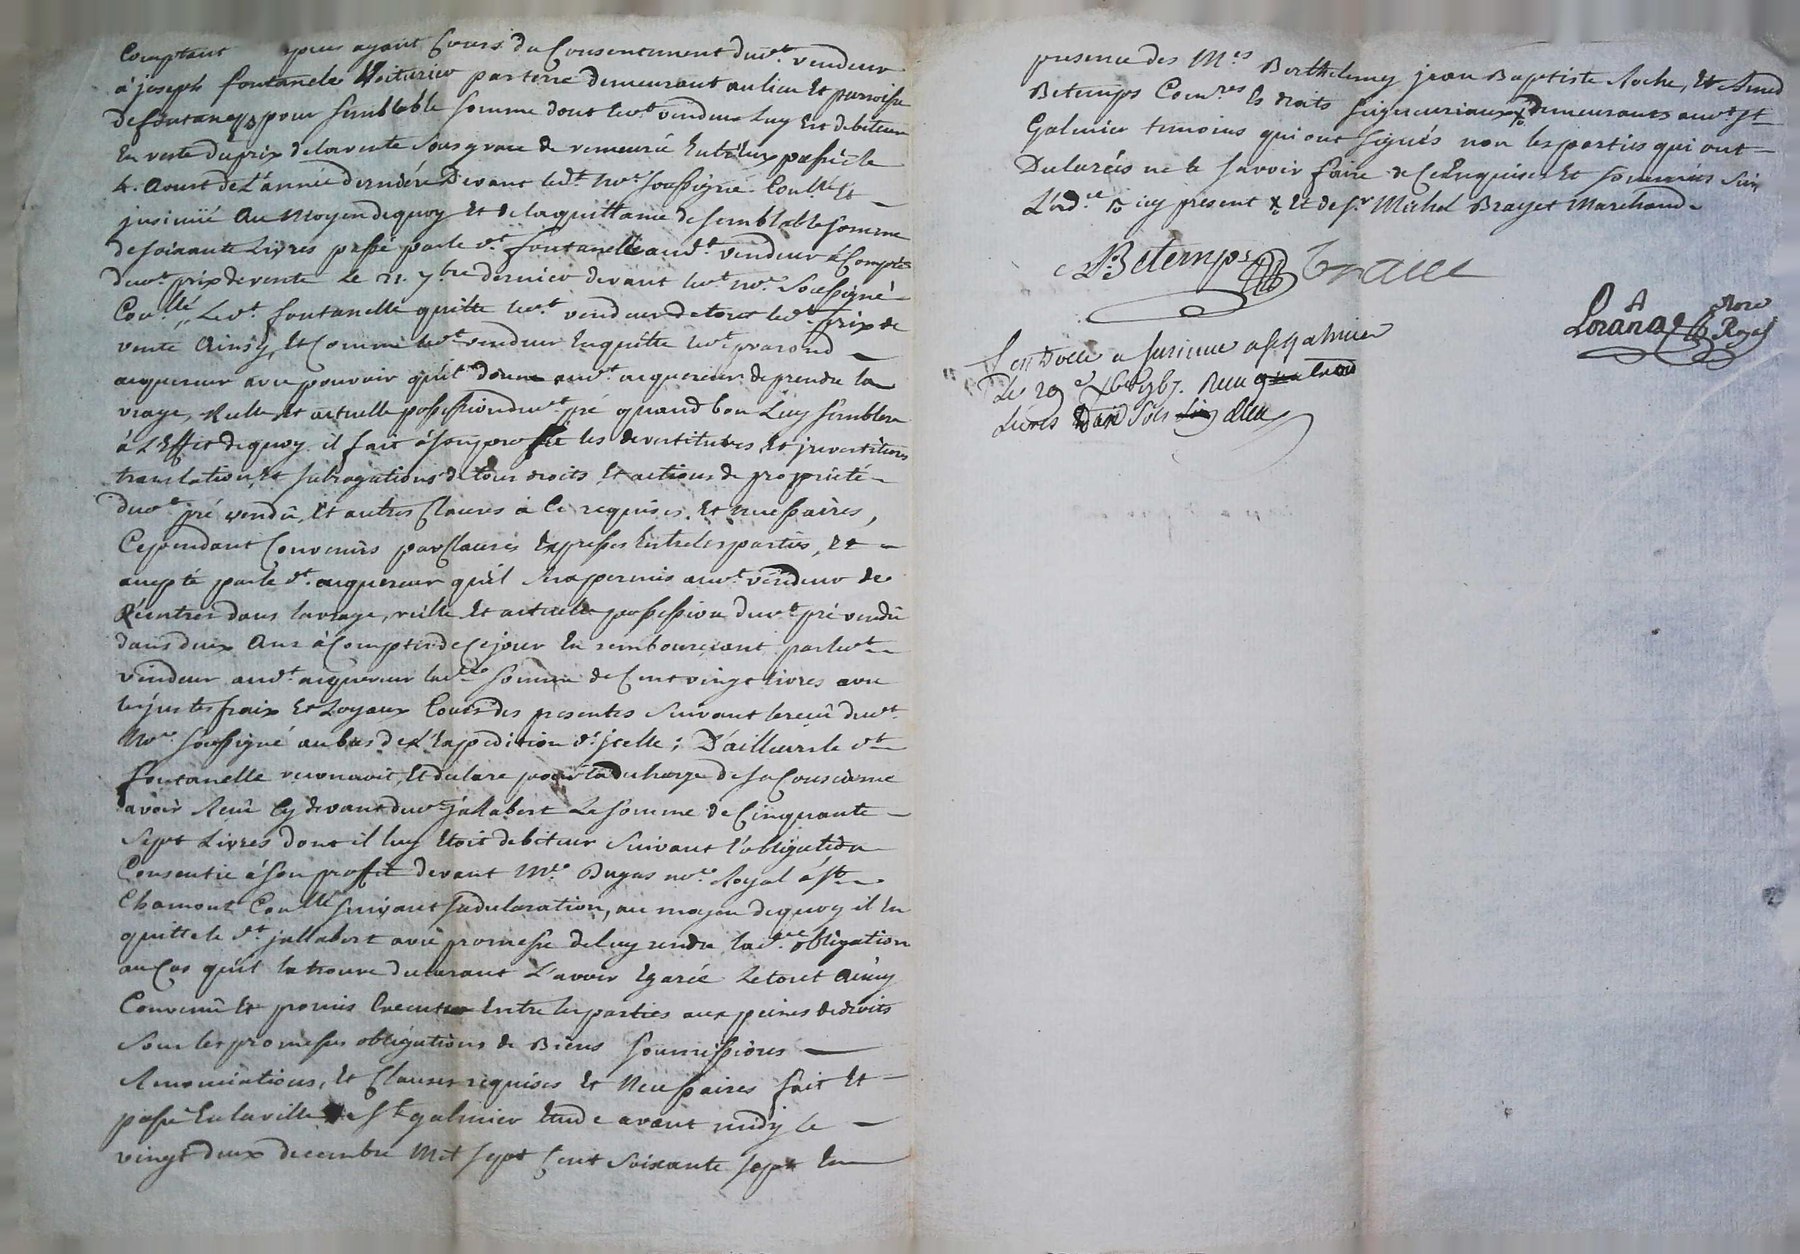 Comptant ayant Cours du Consentement dud.t vendeur
à joseph fontanele Voiturier par terre demeurant au lieu Et parroisse
de fontanes, pour semblable somme dont led.t vendeur Luy Est debiteur
En reste du prix de la vente sous grace de remeuré Entr'Eux passée le
4. Aoust de L'année derniére Devant led.t no.e soussigné Con.llé Et
jnsinué Au Moyen dequoy Et de la quittance de semblable somme
de soixante Livres passé par le d.t fontanelle aud.t vendeur à Compte
dud.t prix de vente Le 21. 7.bre dernier devant led.t no.e Soussigné
Con.llé, Led.t fontanelle quitte led.t vendeur de tout led.t prix de
vente Ainsy, Et Comme led.t vendeur En quitte led.t
acquereur avec pouvoir qu'il donne aud.t acquereur de prendre la
vraye, Reelle Et actuelle possession dud.t pré quand bon Luy semblera
à L'Effet dequoy il fait à son proffit les devestitures, Et jnvestitures
translations, Et subrogations de tous droits Et actions de proprieté
dud.t pré vendû, Et autres Clauses à Ce requises Et necessaires,
Cependant Convenûs par Clauses Expresses Entre les parties, Et
accepté par le d.t acquereur qu'il sera permis aud.t vendeur de
Rentrer dans la vraye, réelle Et actuelle possession dud.t pré vendû
dans deux Ans à Compter de Ce jour En remboursant par led.t
vendeur aud.t acquereur lad.te somme de Cent vingt livres avec
les justes fraix Et Loyaux Couts des presentes suivant le receû dud.t
No.e soussigné au bas de L'Expedition d'jcelle; D'ailleurs le d.t
fontanelle reconnoit, Et declare pour la decharge de sa Conscience
avoir Receû Cy devant dud.t jallabert La somme de Cinquante
sept Livres dont il luy Etoit debiteur suivant l'obligation
Consentie à son proffit devant M.e Dugas no.re Royal à S.t
Chamont Con.llé suivant sa declaration, au moyen dequoy il En
quitte le d.t jallabert avec promesse de luy rendre lad.te obligation
au Cas qu'il la trouve declarant L'avoir Egarée Le tout Ainsy
Convenû Et promis Executer Entre les parties aux peines de droits
sous les promesses obligations de Biens soumissions
Renonciations, Et Clauses requises Et Necessaires fait Et
passé En la ville de S.t galmier Etude avant midy le
vingt deux decembre Mil sept Cent soixante sept En
presence des M.es Berthelemy jean Baptiste Roche, Et
Betemps Com.res Es droits seigneuriaux demeurants aud.t S.t
Galmier temoins qui ont signés non les parties qui ont
Declarées ne le savoir faire de Ce Enquises Et sommées sur
L'Ad.te icy present Et de S.r Michel Brayet Marchand
Betemps Braiet
Lorana No.re Royal
Controllé a S.t galmier
Le 29 Xbre 1767. Receu
Livres Dix sols